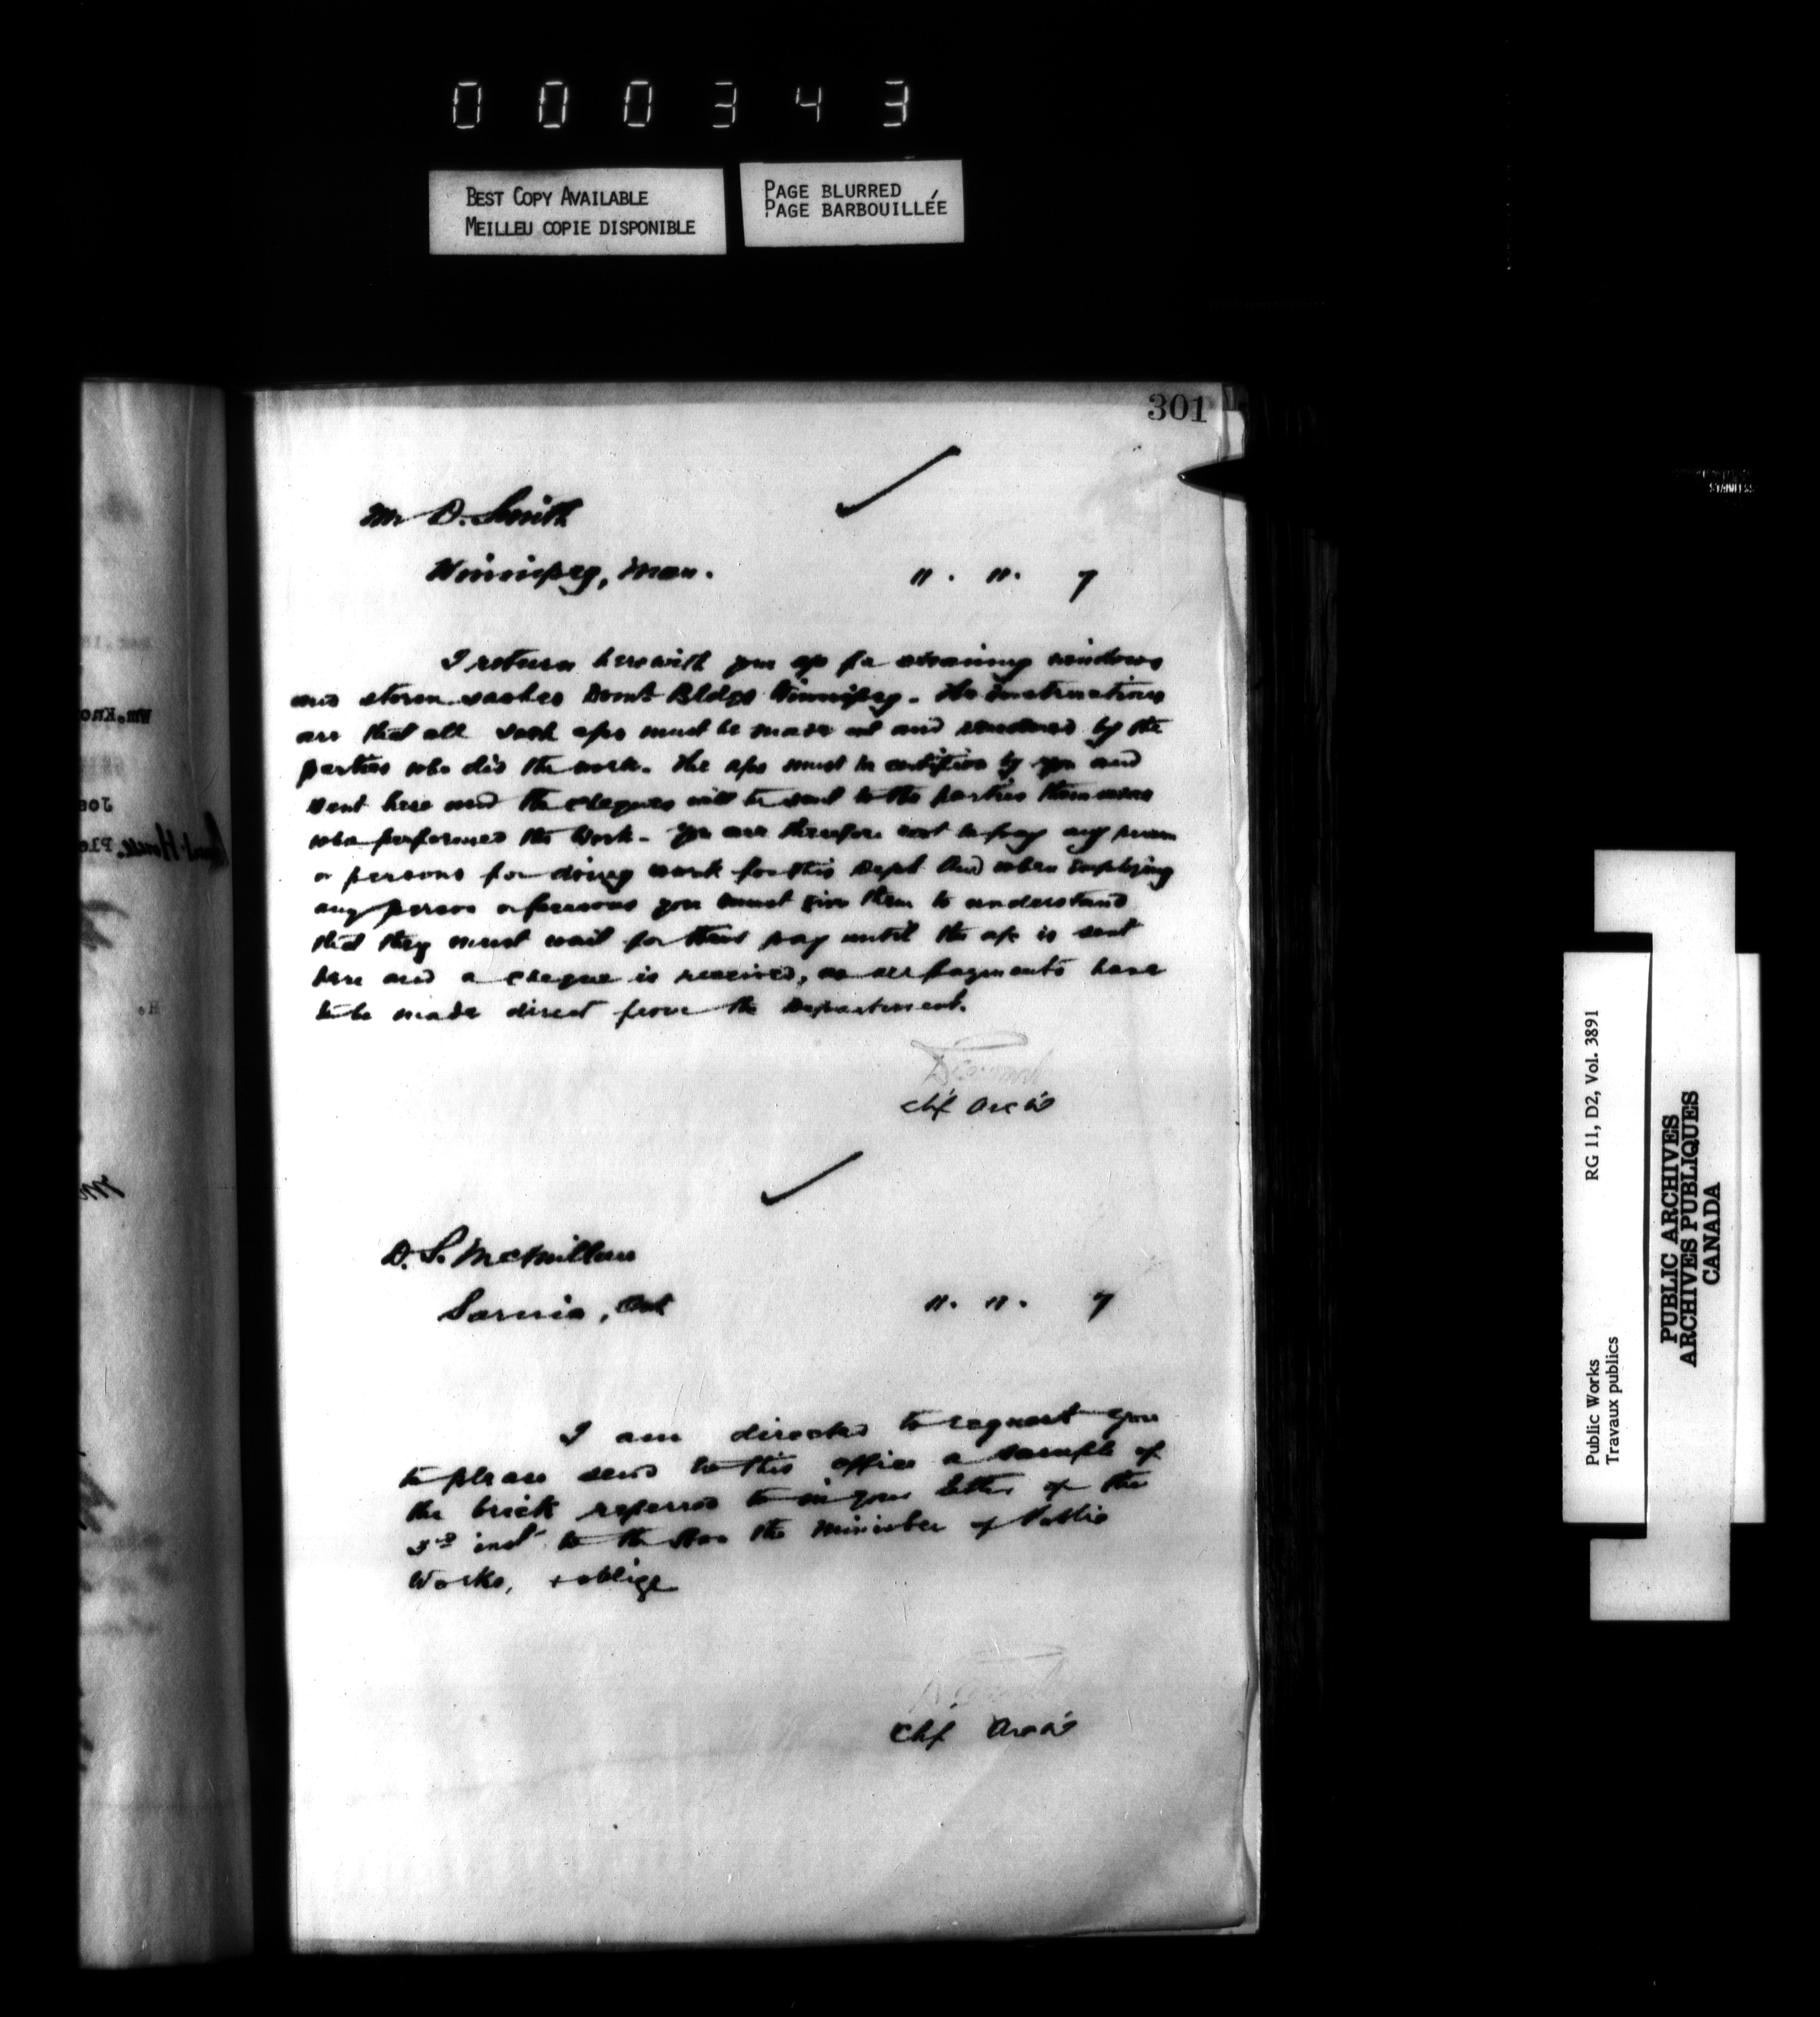 000343
BEST COPY AVAILABLE
MEILLEU COPIE DISPONIBLE
PAGE BLURRED
PAGE BARBOUILLÉE
301
Mr D. Smith
Winnipeg, Man.
11. 11. 7
I return herewith your a/c for cleaning windows
and storm sashes Domn Bldgs Winnipeg. The instructions
are that all such a/cs must be made out and rendered by the
parties who did the work. The a/cs must be certified by you and
sent here and the cheques will be sent to the parties themselves
who performed the work. You are therefore not to pay any person
or persons for doing work for this Dept. And when employing
any person or persons you must give them to understand
that they must wait for their pay until the a/c is sent
here and a cheque is received, as all payments have
to be made direct from the Department.
Chf Arch't
D. S. McMillan
Sarnia, Ont
11. 11. 7
I am directed to request you
to please send to this office a sample of
the brick referred to in your letter of the
inst to the Hon the Minister of Public
Works, + oblige
Chf Arch't
RG 11, D2, Vol. 3891
Public Works
Travaux publics
PUBLIC ARCHIVES
ARCHIVES PUBLIQUES
CANADA